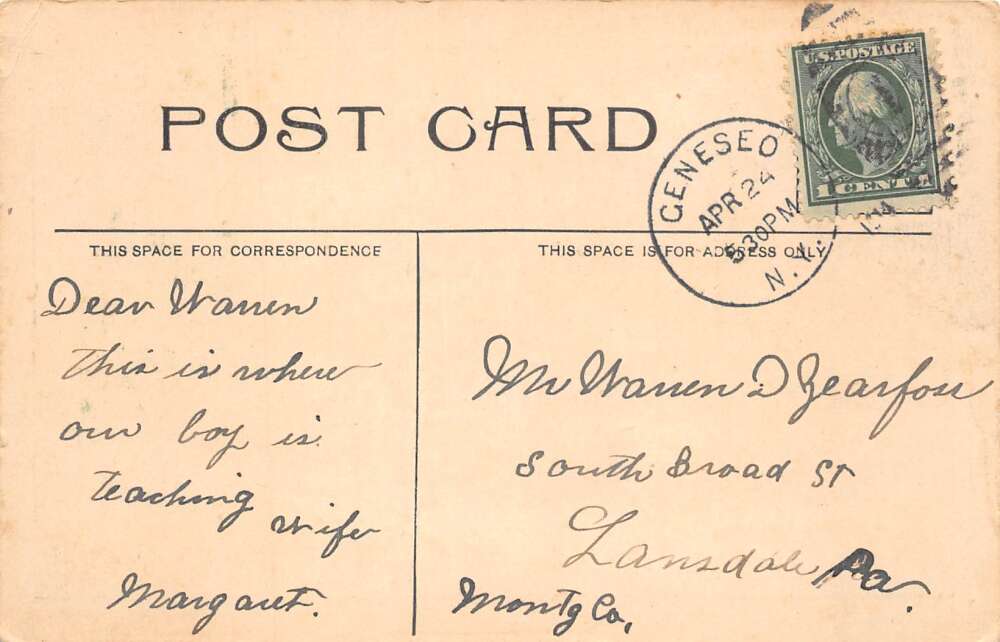 POST CARD
U.S. POSTAGE
1 CENT
GENESEO
APR 24
5 30PM
N.Y.
1914
THIS SPACE FOR CORRESPONDENCE
THIS SPACE IS FOR ADDRESS ONLY
Dear Warren
this is where
our boy is
teaching
wife
Margaret.
Mr Warren D Zearfoss
South Broad St
Lansdale Pa.
Montg Co,